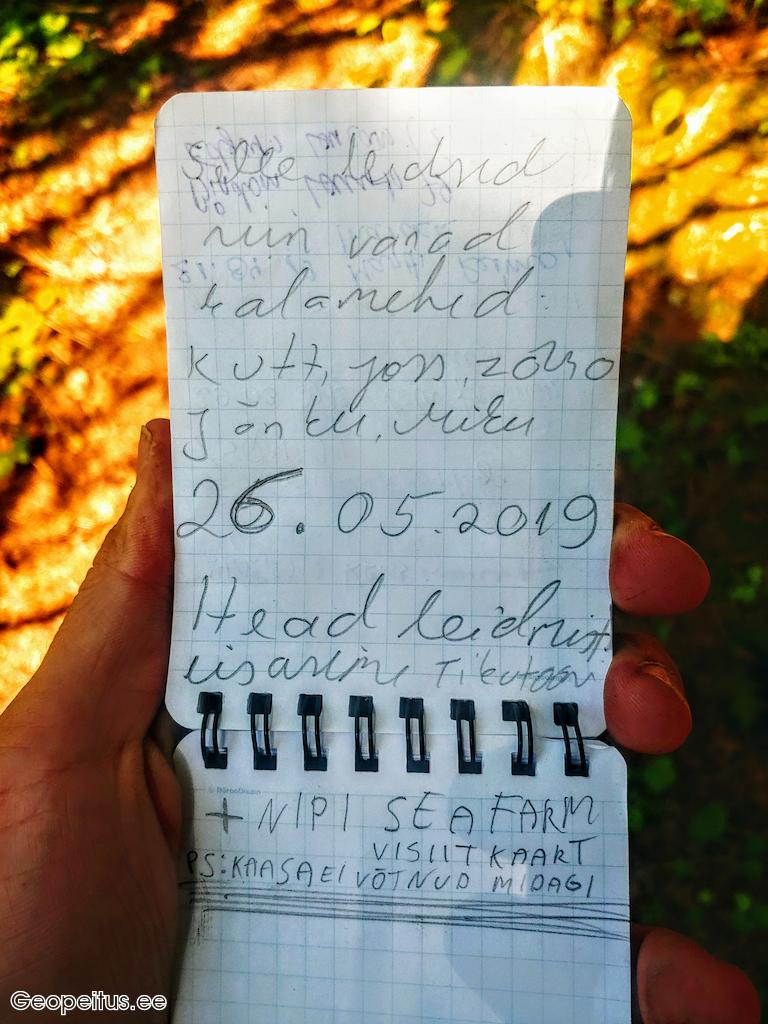 Selle leidsid
niin vanad
kalamehed:
Kutt, Joss, zorro
Jõnku, Miku
26.05.2019
Head leidmist.
lisasime Tikutoosi
+ NIPI SEAFARM
VISIIT KAART
PS: KAASA EI VÕTNUD MIDAGI
Geopeitus.ee